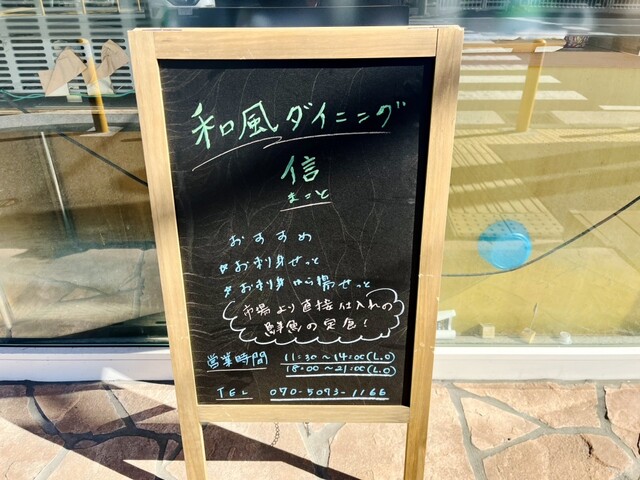 和風ダイニング
信
まこと
おすすめ
☆お刺身せっと
☆お刺身から揚せっと
市場より直接仕入れの
鮮魚の定食!
営業時間 11:30~14:00(L.O)
18:00~21:00(L.O)
TEL 070-5073-1166